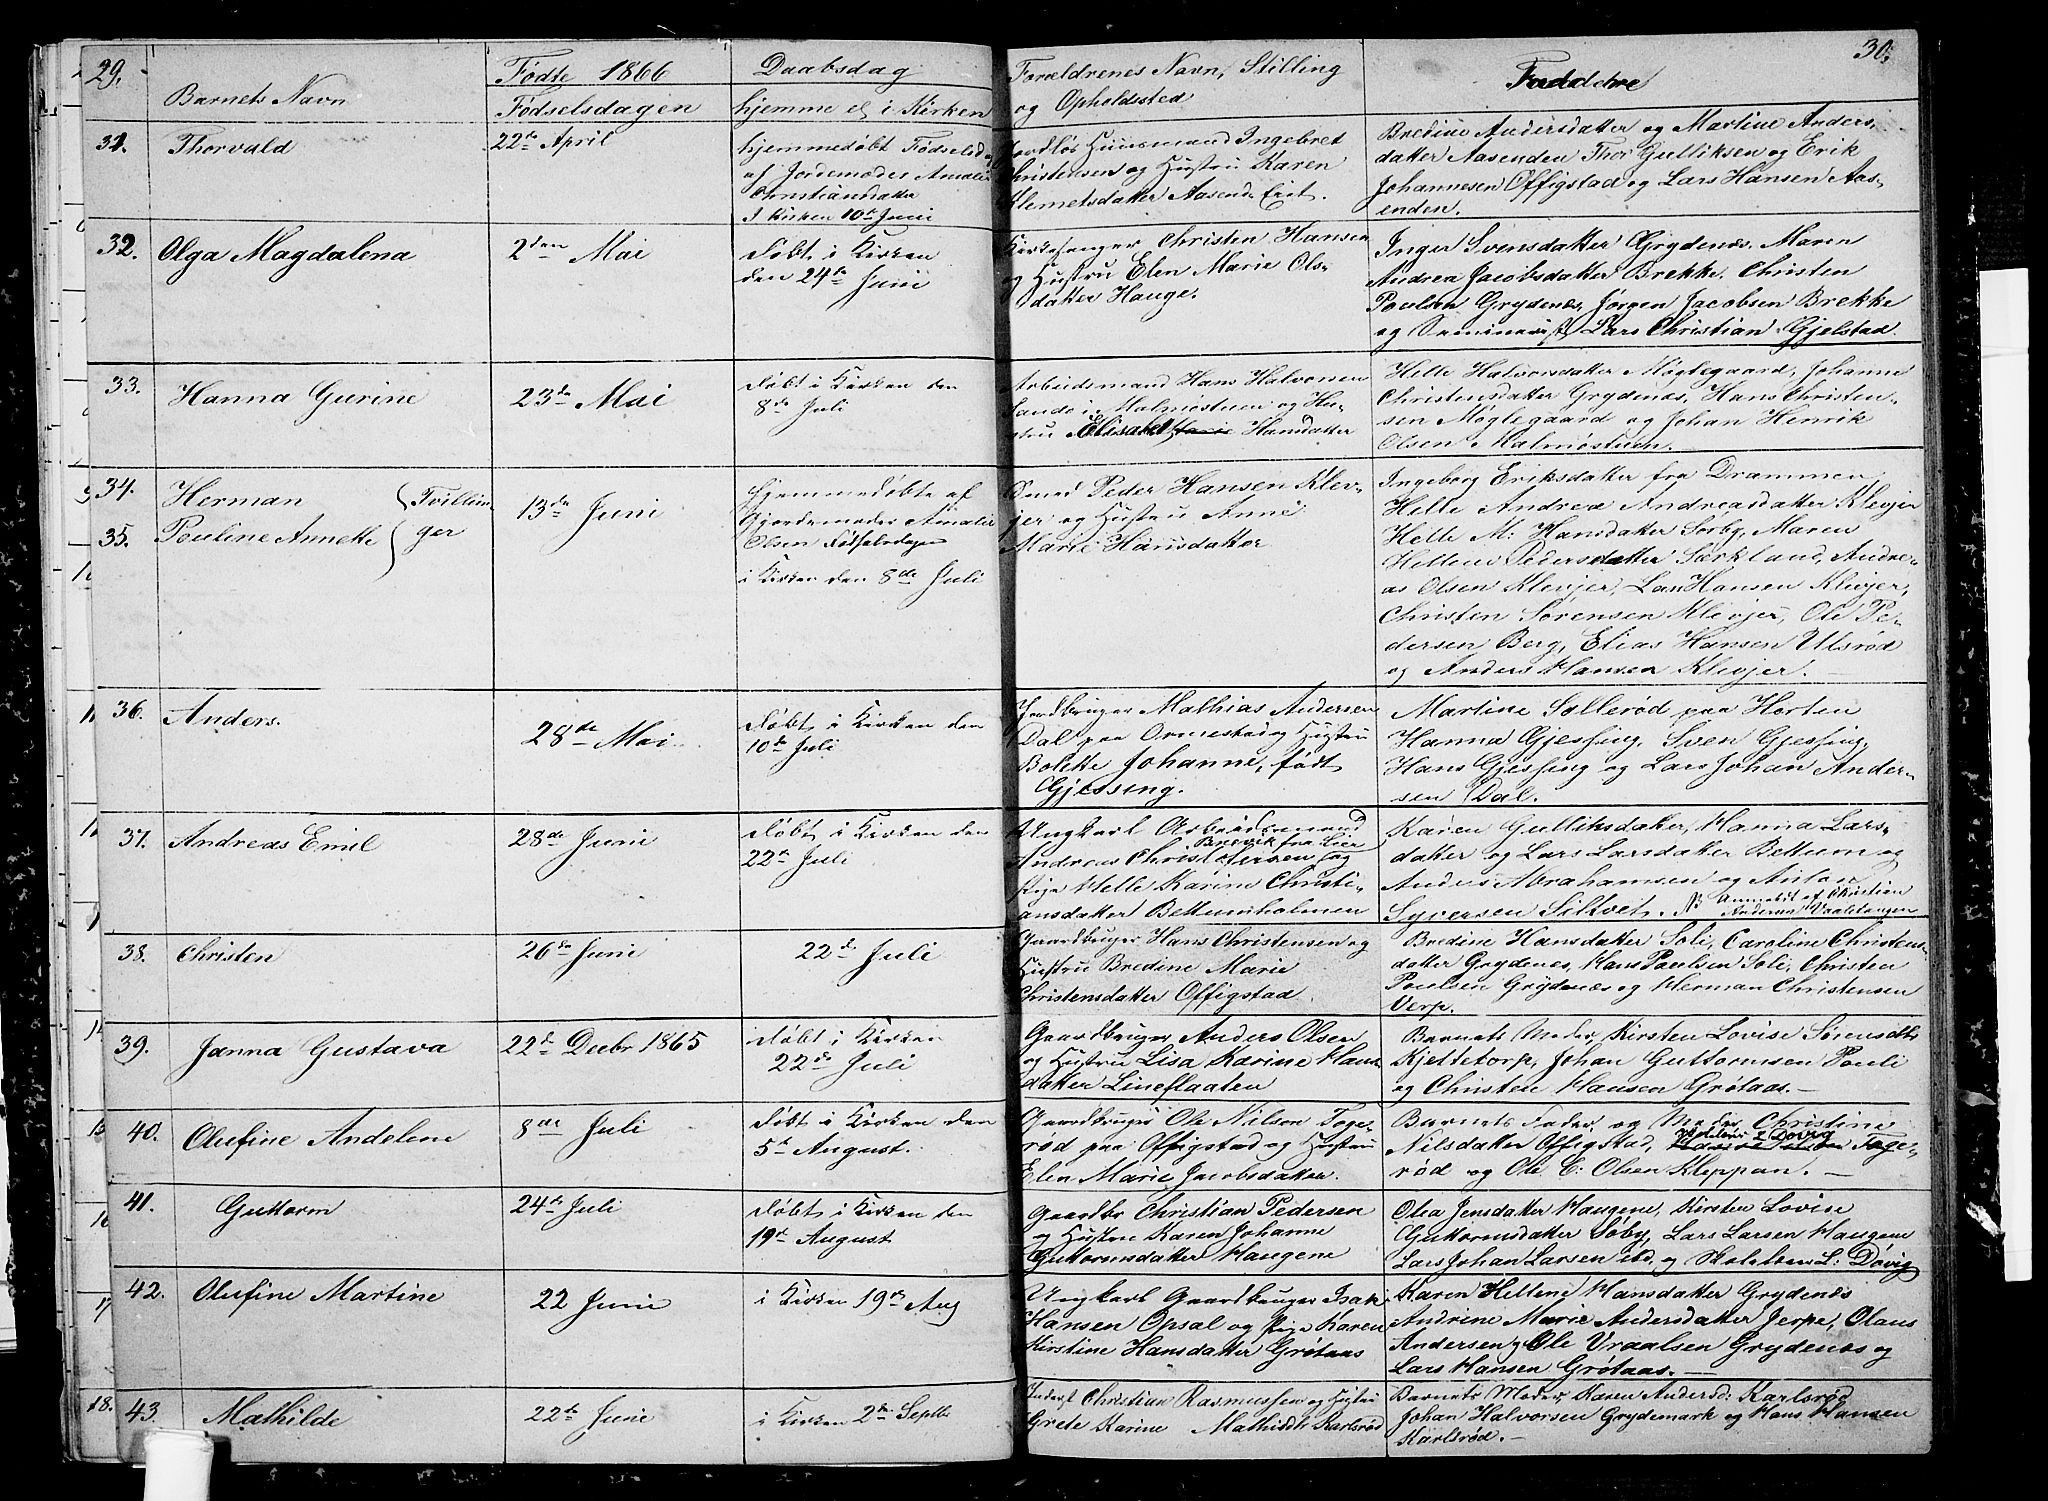 29.
Fødte 1866
Daabsdag
Forældrenes Navn, Stilling
Faddere
30.
Barnets Navn
Fødselsdagen
hjemme el, i Kirken
og Opholdssted
31.
Thorvald
22de April
hjemmedøbt Fødselsd
af Jordemoder Amalie
Christiansdatter
I Kirken 10de Juni
Jordløs Huusmand Ingebret
Christensen og Hustru Karen
Klemetsdatter Aasend. Erit.
Bredine Andersdatter og Martine Anders,
datter Aasenden Thor Gulliksen og Erik
Johannesen Offigstad og Lars Hansen Aas-
enden.
32.
Olga Magdalena
2den Mai
døbt i Kirken
den 24de Juni
Kirkesanger Christen Hansen
og Hustru Elen Marie Ols-
datter Hauge.
Inger Svensdatter Grydenæs. Maren
Andrea Jacobsdatter Brekke. Christen
Poulsen Grydenæs, Jørgen Jacobsen Brekke
og Seminarist Lars Christian Gjelstad.
33.
Hanna Gurine
23de Mai
døbt i Kirken den
8de Juli
Arbeidsmand Hans Halvorsen
Sando i Malmøstuen og Hu-
stru Elisabet Hansdatter
Helle Halvorsdatter Møglegaard, Johanne
Christensdatter Grydenæs, Hans Christen-
sen Møglegaard og Johan Henrik
Olsen Malmøstuen.
34.
Herman
35.
Pouline Annette
Tvillin-
ger
13de Juni
Hjemmedøbte af
Gjordemoder Amalie
Olsen Fødselsdagen
i Kirken den 8de Juli
Smed Peder Hansen Klev-
jer og Hustru Anne
Marie Hansdatter
Ingeborg Eriksdatter fra Drammen
Helle Andrea Andreasdatter Klevjer
Helle M: Hansdatter Sørby, Maren
Hellene Pedersdatter Sørkland, Andre-
as Olsen Klevjer, Lars Hansen Klevjer,
Christen Sørensen Klevjer, Ole Pe-
dersen Berg, Elias Hansen Ulsrød
og Anders Hansen Klevjer.
36.
Anders.
28de Mai
døbt i Kirken den
10de Juli
Jordbruger Mathias Andersen
Dal paa Ormestad og Hustru
Bolette Johanne, født
Gjessing.
Martine Sollerød paa Horten
Hanna Gjessing, Sven Gjessing,
Hans Gjessing og Lars Johan Ander-
sen Dal.
37.
Andreas Emil
28de Juni
døbt i Kirken den
22de Juli
Ungkarl Arbeidsmand
Brevik fra Lier
Andreas Christofersen og
Pige Helle Karine Christi-
ansdatter Bettumholmen
Karen Gulliksdatter, Hanna Lars-
datter og Lars Larsdatter Bettum og
Anders Abrahamsen og Anton
Syversen Siltvet. NB Anmeldt af Christian
Andersen Vaalstangen
38.
Christen
26de Juni
22de Juli
Gaardbruger Hans Christensen og
Hustru Bredine Marie
Christensdatter Offigstad.
Bredine Hansdatter Soli, Caroline Christens-
datter Grydenes, Hans Poulsen Soli, Christen
Poulsen Grydenæs og Herman Christensen
Verp.
39.
Janna Gustava
22de Decbr 1865
døbt i Kirken
22de Juli
Gaardbruger Anders Olsen
og Hustru Lisa Karine Hans-
datter Lineflaaten
Barnets Moder, Kirsten Lovise Sørensdtr
Kjeldetorp, Johan Guttormsen Pouli
og Christen Hansen Grøtaas.
40.
Olufine Andelene
8de Juli
døbt i Kirken den
5te August.
Gaardbruger Ole Nilsen Toge-
rød paa Offigstad og Hustru
Elen Marie Jacobsdatter.
Barnets Fader, og Moder Christine
Nilsdatter Offigstad, Toge-
rød og Ole C: Olsen Kleppan.
41.
Guttorm
24de Juli
døbt i Kirken den
19de August
Gaardbr Christian Pedersen
og Hustru Karen Johanne
Guttormsdatter Haugene
Olea Jensdatter Haugene, Kirsten Lovise
Guttormsdatter Søby, Lars Larsen Haugene
Lars Johan Larsen ibd, og Skolelærer L: Døvig
42.
Olufine Martine
22 Juni
i Kirken 19de Aug
Ungkarl Gaardbruger Isak
Hansen Opsal og Pige Karen
Kirstine Hansdatter Grøtaas
Karen Hellene Hansdatter Grydenæs
Andrine Marie Andersdatter Jerpe, Olaus
Andersen, Ole Vraalsen Grydenæs og
Lars Hansen Grøtaas.
43.
Mathilde
22de Juni
i Kirken 2de Septbr
Inderst Christian Rasmussen og Hustru
Grete Karine Mathisdtr Karlsrød
Barnets Moder, Karen Andersd: Karlsrød
Johan Halvorsen Grydemark og Hans Hansen
Karlsrød.